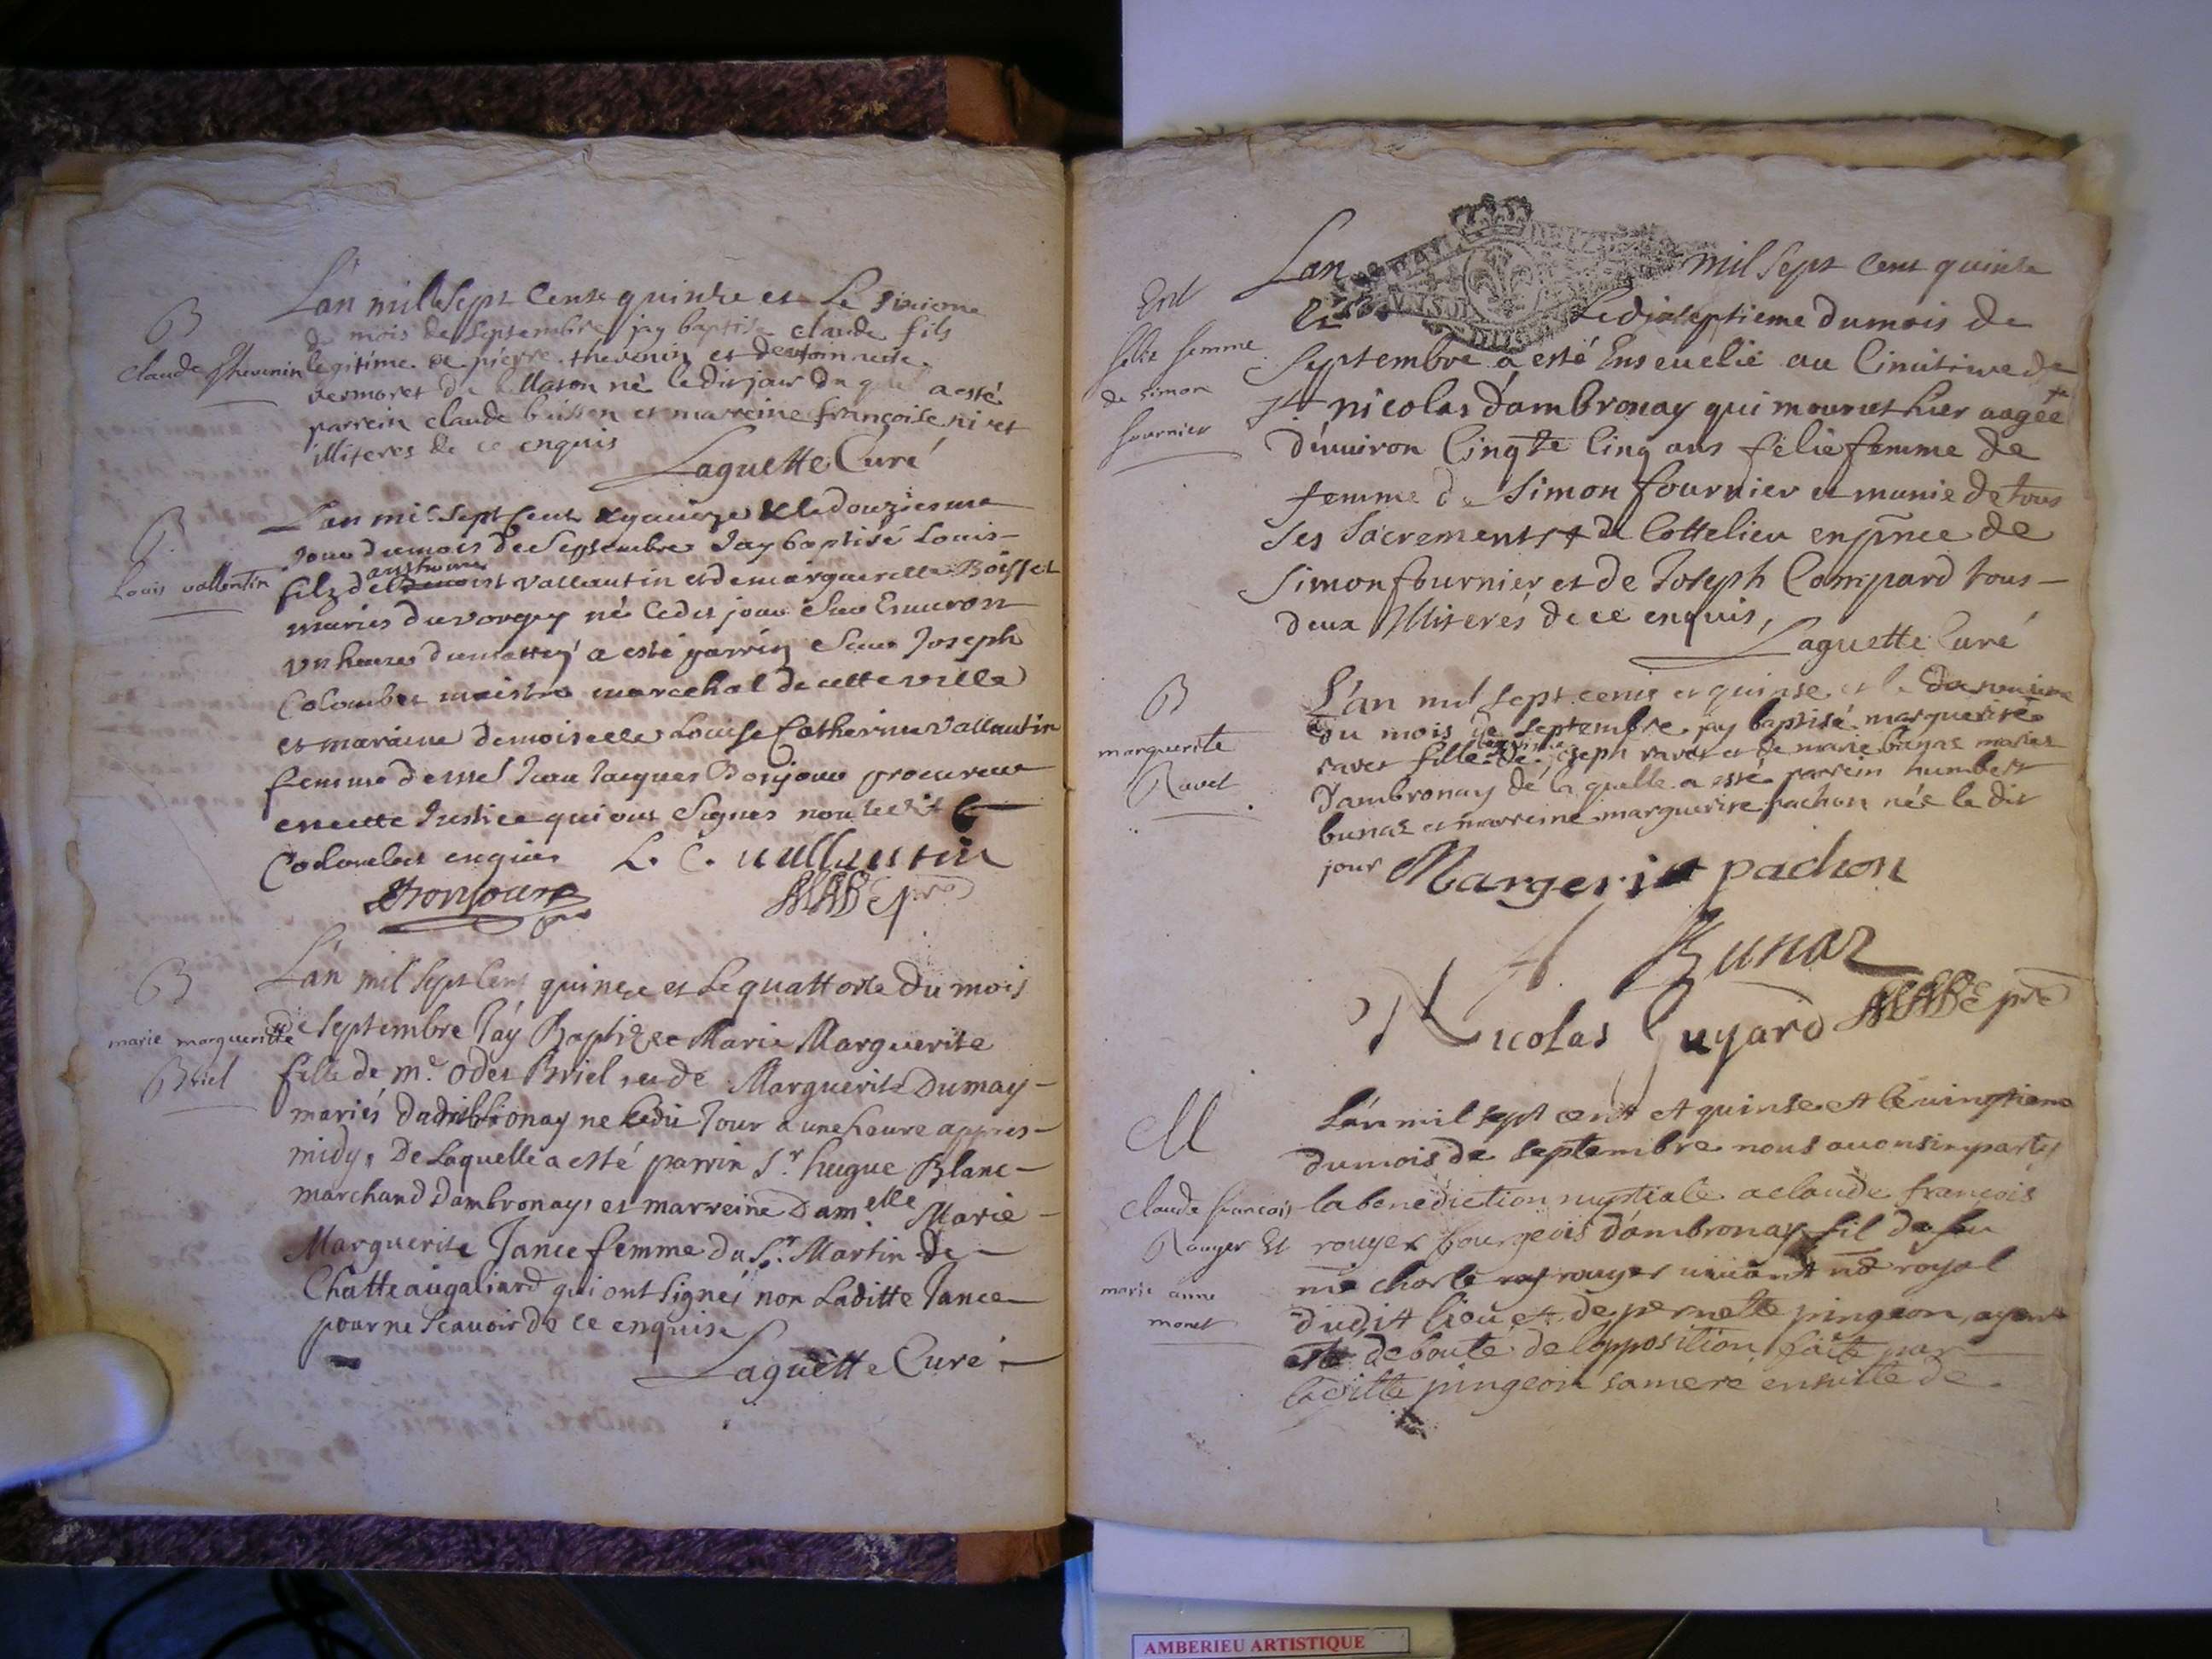 B
claude thevenin
L'an mille sept cents quinse et le sixieme
du mois de septembre jay baptisé claude fils
legitime de pierre thevenin et de
vermoret du né ledit jour du quel a esté
parrein claude buisson et marreine françoise nivet
illiteres de ce enquis
Laguette Curé
B
Louis vallentin
L'an mil sept cent & quainze & le douziesme
Jour du mois de septembre Jay baptisé Louis
anthoine
filz de Benoist vallantin et de marguerelle Boisset
mariés du né ledit jour sur Environ
un heures du mattin a esté parrin Sieur Joseph
Colombet maistre marechal de cette ville
et maraine demoiselle Louise Catherine vallantin
femme de Jean Jacques Bonjour procureur
en cette Justice qui ont signés non ledit
Colombet enquis L. C. vallantin
Bonjour
B
marie marguerite
Briel
L'an mil sept cent quinze et le quattorse du mois
de septembre Jay Baptizée Marie Marguerite
fille de me. odet Briel et de Marguerite Dumay
mariés dambronay ne ledit Jour a une heure appres
midy, De Laquelle a esté parrin Sr. hugue Blanc
marchand Dambronay, et marreine Damelle. Marie
Marguerite Jance femme du Sr. Martin de
Chatteaugaliard qui ont signés non Laditte Jance
pour ne scavoir de ce enquise
Laguette Curé
Ent
felie femme
de simon
fournier
Lan mil sept cent quinse
Et Le dixseptieme du mois de
septembre a esté Enseuelie au Cimitiere de
St nicolas d'ambronay qui mourut hier aagée
d'enuiron Cinqte Cinq ans felie femme de
femme de Simon fournier et munie de tous
ses Sacrements du Cottelieu en pnce de
Simon fournier et de Joseph Compard tous
deux Illiterés de ce enquis,
Laguette Curé
B
marguerite
Ravet
L'an mil sept cents et quinse et le
du mois de septembre jay baptisé marguerite
ravet fille de joseph ravet et de marie bunaz mariez
d'ambronay de la quelle a esté parrein humbert
bunaz et marreine marguerite pachon née le dit
jour Margerit pachon
H Bunaz
Nicolas Guyard
M
Claude françois
Rouyer Et
marie anne
monet
L'an mil sept cent et quinse et le uingtieme
du mois de septembre nous auons imparty
la benediction nuptiale a claude françois
rouyer bourgeois d'ambronay fil de feu
me charle rouyer uiuant no royal
dudit liou et de pernette pingeon, ayent
esté deboute de lopposition faite par
laditte pingeon sa mere ensuitte de
AMBERIEU ARTISTIQUE